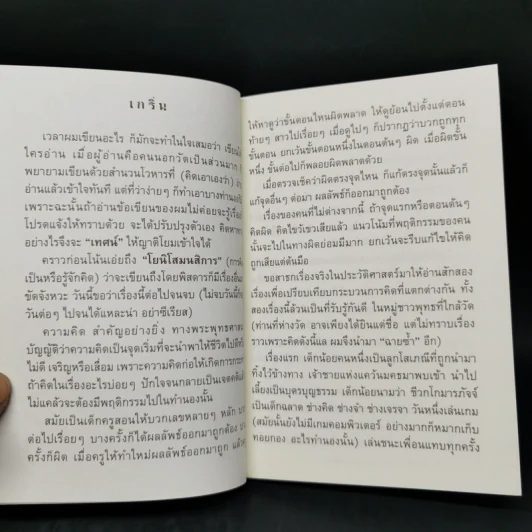 เกริ่น
เวลาผมเขียนอะไร ก็มักจะทำในใจเสมอว่า เขียนให้
ใครอ่าน เมื่อผู้อ่านคือคนนอกวัดเป็นส่วนมาก
พยายามเขียนด้วยสำนวนโวหารที่ (คิดเอาเองว่า)
อ่านแล้วเข้าใจทันที แต่ที่ว่าง่ายๆ ก็ทำเอาบางท่าน
เพราะฉะนั้นถ้าอ่านข้อเขียนของผมไม่ค่อยจะรู้เรื่อง
โปรดแจ้งให้ทราบด้วย จะได้ปรับปรุงตัวเอง
อย่างไรจึงจะ "เทศน์" ให้ญาติโยมเข้าใจได้
คราวก่อนโน้นเอ่ยถึง "โยนิโสมนสิการ"
เป็นหรือรู้จักคิด) ว่าจะเขียนถึงโดยพิสดารก็มีเรื่องอื่น
ขัดจังหวะ วันนี้ขอว่าเรื่องนี้ต่อไปจนจบ (ไม่จบวันนี้ก็
วันต่อๆ ไปจนได้แหละน่า อย่าซีเรียส)
ความคิด สำคัญอย่างยิ่ง ทางพระพุทธศาส
บัญญัติว่าความคิดเป็นจุดเริ่มที่จะนำพาให้ชีวิตไปดี
ไม่ดี เจริญหรือเสื่อม เพราะความคิดก่อให้เกิดการกระ
ถ้าคิดในเรื่องอะไรบ่อยๆ ปักใจจนกลายเป็นเจตคติ
ไม่แคล้วจะต้องมีพฤติกรรมไปในทำนองนั้น
สมัยเป็นเด็กครูสอนให้บวกเลขหลายๆ หลัก
ต่อไปเรื่อยๆ บางครั้งก็ได้ผลลัพธ์ออกมาถูกต้อง
ครั้งก็ผิด เมื่อครูให้ทำใหม่ผลลัพธ์ออกมาถูก แล้ว
ให้หาดูว่าขั้นตอนไหนผิดพลาด ให้ดูย้อนไปตั้งแต่ตอน
ท้ายๆ สาวไปเรื่อยๆ เมื่อดูไปๆ ก็ปรากฏว่าบวกถูกทุก
ขั้นตอน ยกเว้นขั้นตอนหนึ่งในตอนต้นๆ ผิด เมื่อผิดขั้น
หนึ่ง ขั้นต่อไปก็พลอยผิดพลาดด้วย
เมื่อตรวจเช็คว่าผิดตรงจุดไหน ก็แก้ตรงจุดนั้นแล้วก็
แก้จุดอื่นๆ ต่อมา ผลลัพธ์ก็ออกมาถูกต้อง
เรื่องของคนที่ไม่ต่างจากนี้ ถ้าจุดแรกหรือตอนต้นๆ
คิดผิด คิดไขว้เขวเสียแล้ว แนวโน้มที่พฤติกรรมของคน
นั้นจะไปในทางผิดย่อมมีมาก ยกเว้นจะรีบแก้ไขให้คิด
ถูกเสียแต่ต้นมือ
ขอสาธกเรื่องจริงในประวัติศาสตร์มาให้อ่านสักสอง
เรื่องเพื่อเปรียบเทียบกระบวนการคิดที่แตกต่างกัน ทั้ง
สองเรื่องนี้ล้วนเป็นที่รับรู้กันดี ในหมู่ชาวพุทธที่ใกล้วัด
(ท่านที่ห่างวัด อาจเพียงได้ยินแต่ชื่อ แต่ไม่ทราบเรื่อง
ราวเพราะคิดดังนี้แล ผมจึงนำมา "ฉายซ้ำ" อีก)
เรื่องแรก เด็กน้อยคนหนึ่งเป็นลูกโสเภณีที่ถูกนำมา
ทิ้งไว้ข้างทาง เจ้าชายแห่งแคว้นมคธมาพบเข้า นำไป
เลี้ยงเป็นบุตรบุญธรรม เด็กน้อยนามว่า ชีวกโกมารภัจจ์
เป็นเด็กฉลาด ช่างคิด ช่างจำ ช่างเจรจา วันหนึ่งเล่นเกม
(สมัยนั้นยังไม่มีเกมคอมพิวเตอร์ อย่างมากก็หมากเก็บ
ทอยกอง อะไรทำนองนั้น) เล่นชนะเพื่อนแทบทุกครั้ง